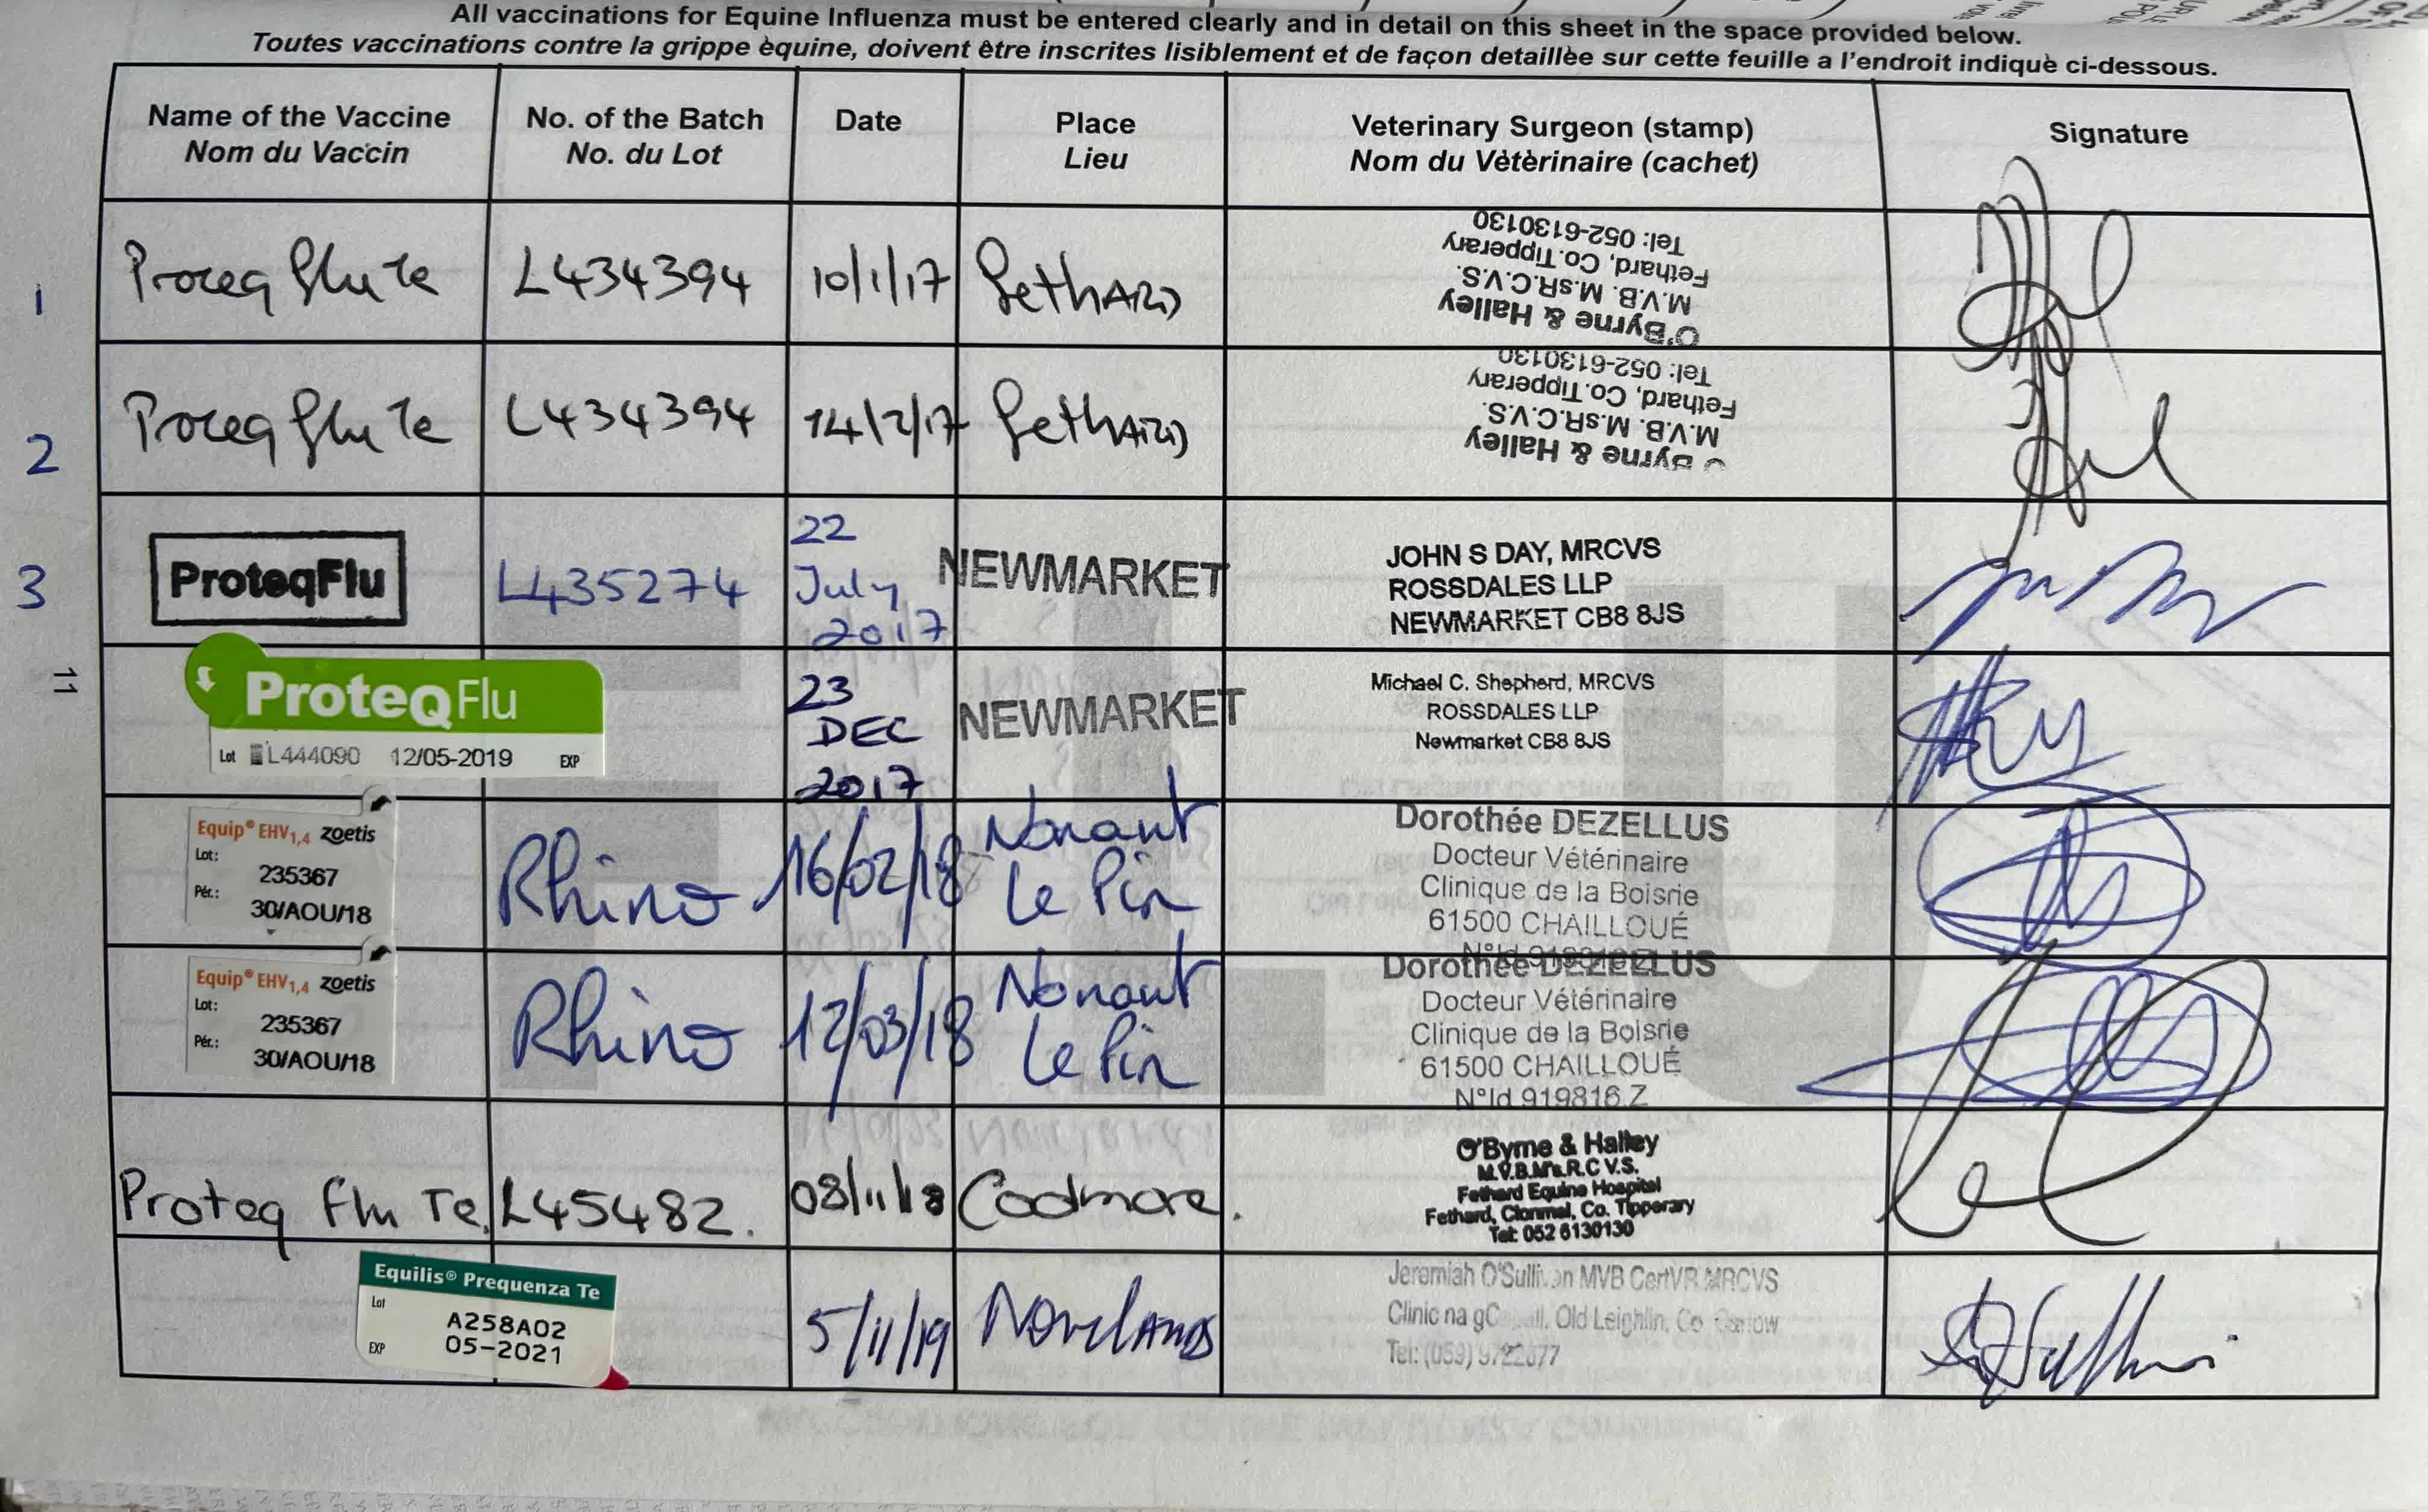 All vaccinations for Equine Influenza must be entered clearly and in detail on this sheet in the space provided below.
Toutes vaccinations contre la grippe èquine, doivent ètre inscrites lisiblement et de façon detaillèe sur cette feuille a l'endroit indiquè ci-dessous.
Name of the Vaccine
Nom du Vaccin
No. of the Batch
No. du Lot
Date
Place
Lieu
Veterinary Surgeon (stamp)
Nom du Vètèrinaire (cachet)
Signature
1
Proteq Flu Te
L434394
10/1/17
FethARD
O'Byrne & Halley
M.V.B. M.sR.C.V.S.
Fethard, Co. Tipperary
Tel: 052-6130130
2
Proteq Flu Te
L434394
14/2/17
FethARD
Byrne & Halley
M.V.B. M.sR.C.V.S.
Fethard, Co. Tipperary
Tel: 052-6130130
3
ProteqFlu
L435274
22
July
2017
NEWMARKET
JOHN S DAY, MRCVS
ROSSDALES LLP
NEWMARKET CB8 8JS
11
ProteqFlu
Lot L444090 12/05-2019 EXP
23
DEC
2017
NEWMARKET
Michael C. Shepherd, MRCVS
ROSSDALES LLP
Newmarket CB8 8JS
Equip® EHV1,4 zoetis
Lot:
235367
Pér.:
30/AOU/18
Rhino
16/02/18
Nonant
Le Pin
Dorothée DEZELLUS
Docteur Vétérinaire
Clinique de la Boisrie
61500 CHAILLOUÉ
Equip® EHV1,4 zoetis
Lot:
235367
Pér.:
30/AOU/18
Rhino
12/03/18
Nonant
Le Pin
Dorothée DEZELLUS
Docteur Vétérinaire
Clinique de la Boisrie
61500 CHAILLOUÉ
N°Id 919816 Z
Proteq Flu Te.
L45482.
08/11/18
Coolmore.
O'Byrne & Halley
M.V.B.M's.R.C V.S.
Fethard Equine Hospital
Fethard, Clonmel, Co. Tipperary
Tel: 052 6130130
Equilis® Prequenza Te
Lot
A258A02
EXP
05-2021
5/11/19
NovelANDS
Jeremiah O'Sullivan MVB CertVR MRCVS
Clinic na gC all, Old Leighlin, Co Carlow
Tel: (059) 9722077